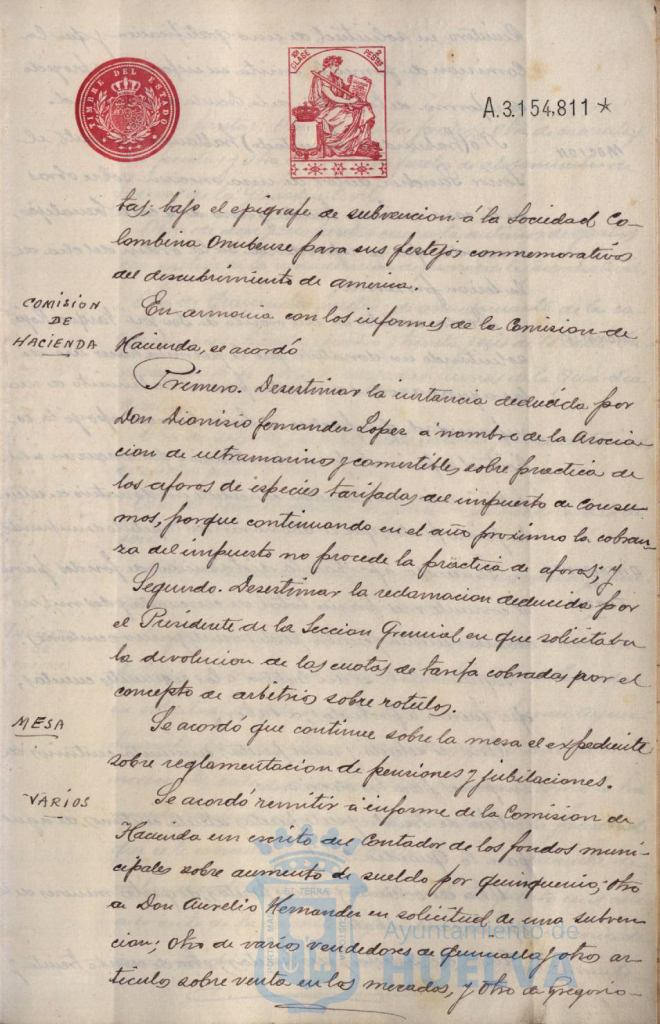 TIMBRE DEL ESTADO
10ª CLASE
2 PESTAS
A.3.154,811 *
tas; bajo el epigrafe de subvencion á la Sociedad Co-
lombina Onubense para sus festejos conmemorativos
del descubrimiento de america.
COMISION
DE
HACIENDA
En armonia con los informes de la Comision de
Hacienda, se acordó
Primero. Desestimar la instancia deducida por
Don Dionisio Fernander Lopez á nombre de la Asocia
cion de ultramarinos y comestibles sobre practica de
los aforos de especies tarifadas del impuesto de Consu
mos, porque continuando en el año proximo la cobran-
za del impuesto no procede la práctica de aforos; y
Segundo. Desestimar la reclamacion deducida por
el Presidente de la Seccion Gremial en que solicitaba
la devolucion de las cuotas de tarifa cobradas por el
concepto de arbitrios sobre rotulos.
MESA
Se acordó que continue sobre la mesa el expediente
sobre reglamentacion de pensiones y jubilaciones.
VARIOS
Se acordó remitir á informe de la Comision de
Hacienda un escrito del Contador de los fondos muni-
cipales sobre aumento de sueldo por quinquenio; otro
a Don Aurelio Hernander en solicitud de una subven
cion; otro de varios vendedores de quincalla y otros ar-
ticulos sobre venta en los mercados, y otro de Gregorio
Ayuntamiento de
HUELVA